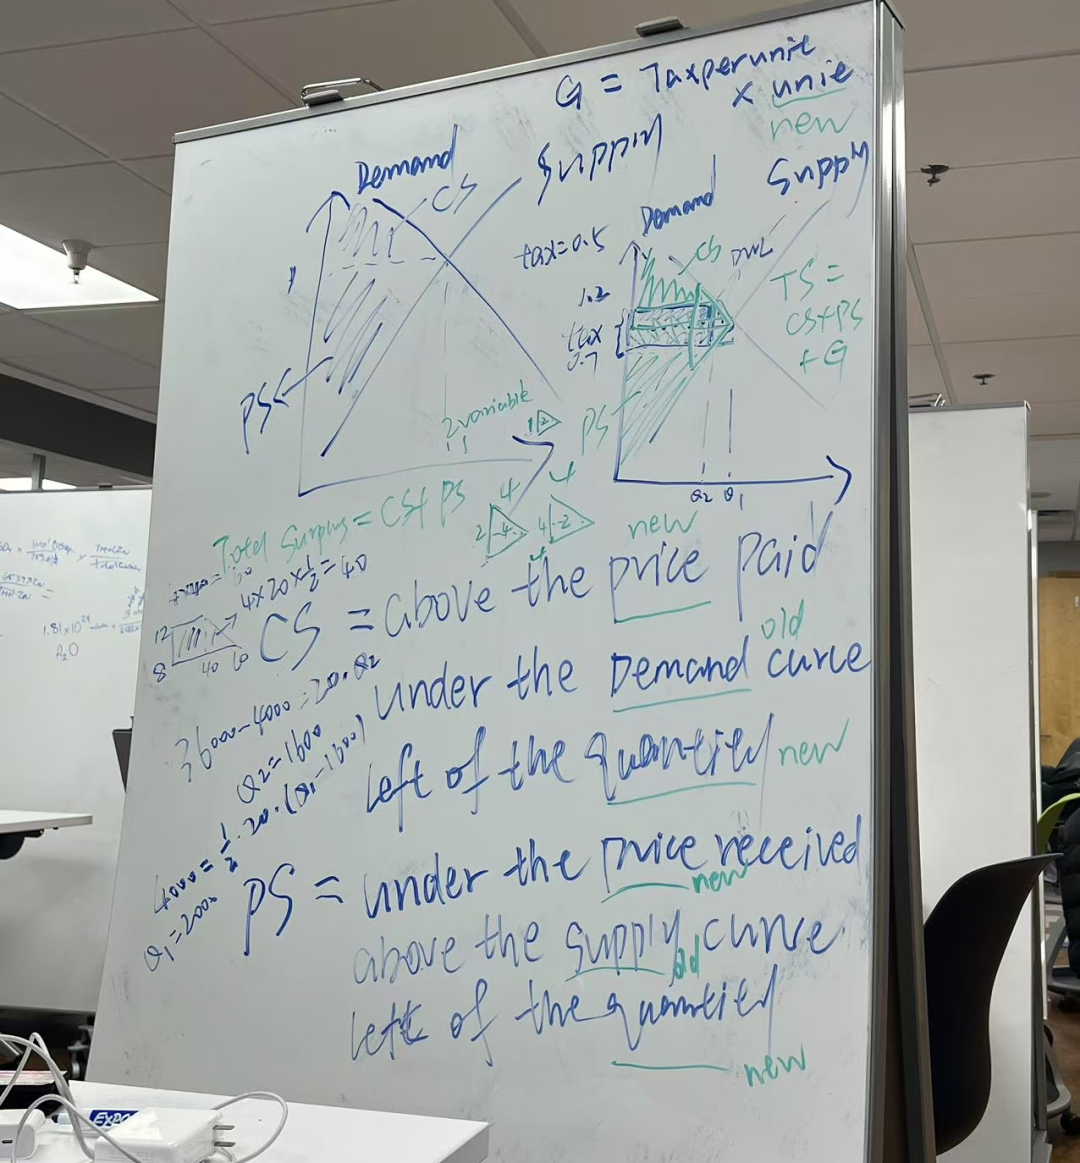 G = Taxperunit
x unie
new
Demand
CS
Supply
PS
2 variable
Total Surplus = CS+ PS
tax=0.5
Demand
Supply
CS
DWL
1.2
tax
0.7
PS
TS =
CS+PS
+ G
Q2 Q1
1 2
2 4 4
4 2 4
new
4x20x½=40
12
8
40 60
CS = above the price paid
old
under the Demand curve
left of the quantied new
36000-4000=20.Q2
Q2=1600
4000 = ½.20.(Q1-1600)
Q1=2000
PS = under the price received
new
above the supply curve.
old
left of the quantied
new
EXPO